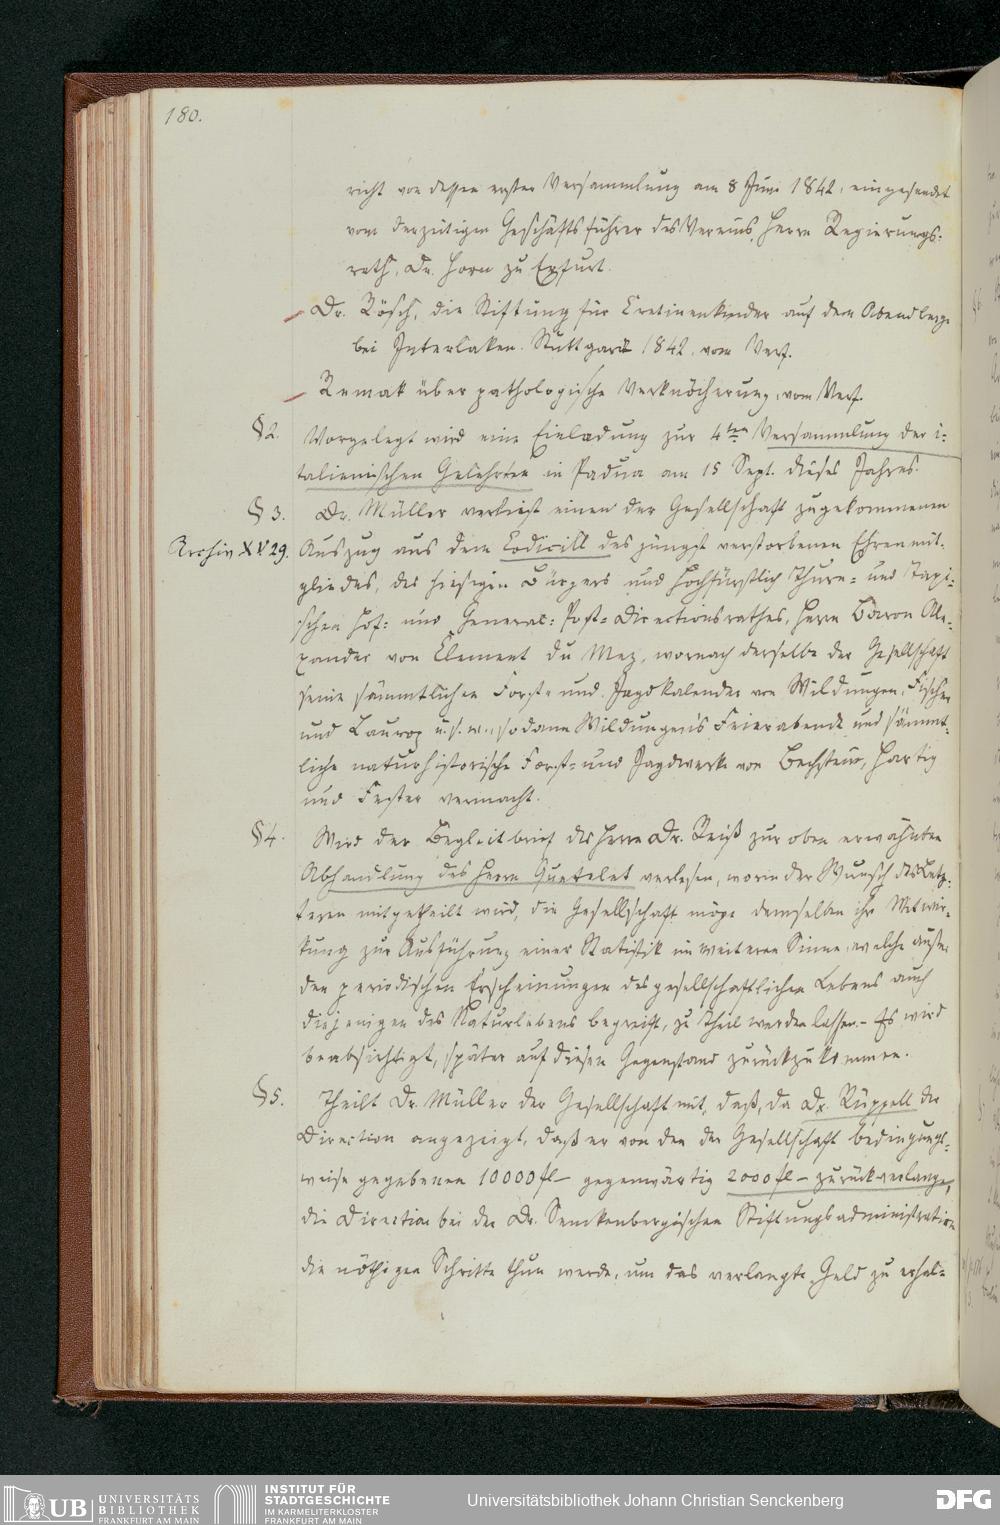 180.
richt von dessen erster Versammlung am 8 Juni 1842, eingesendet
vom derzeitigen Geschäftsführer des Vereins, Herrn Regierungs-
rath, Dr. Horn zu Erfurt.
Dr. Rösch, die Stiftung für Cretinenkinder auf dem Abendberge
bei Interlaken. Stuttgart 1842, vom Verf.
Remak über pathologische Verknöcherung, vom Verf.
§2. Vorgelegt wird eine Einladung zur 4ten Versammlung der i-
talienischen Gelehrten in Padua am 15 Sept. dieses Jahres.
§3. Dr. Müller verliest einen der Gesellschaft zugekommenen
Archiv XV 29. Auszug aus dem Codicill des jüngst verstorbenen Ehrenmit-
gliedes, des hiesigen Bürgers und Hochfürstlich Thurn- und Taxi-
schen Hof- und General-Post-Directionsrathes, Herrn Baron Ale-
xander von Clement du Mez, wornach derselbe der Gesellschaft
seine sämmtlichen Forst- und Jagdkalender von Wildungen, Fischer
und Laurop u. s. w., sodann Wildungen's Feierabende und sämmt-
liche naturhistorische Forst- und Jagdwerke von Bechstein, Hartig
und Fester vermacht.
§4. Wird der Begleitbrief des Herrn Dr. Reiß zur oben erwähnten
Abhandlung des Herrn Quetelet verlesen, worin der Wunsch des Letz-
teren mitgetheilt wird, die Gesellschaft möge demselben ihr Mitwir-
kung zur Ausführung einer Statistik im weiteren Sinne, welche außer
den periodischen Erscheinungen des gesellschaftlichen Lebens auch
diejenigen des Naturlebens begreift, zu Theil werden lassen. – Es wird
beabsichtigt, später auf diesen Gegenstand zurückzukommen.
§5. Theilt Dr. Müller der Gesellschaft mit, daß, da Dr. Rüppell der
Direction angezeigt, daß er von den der Gesellschaft bedingungs-
weise gegebenen 10000 fl– gegenwärtig 2000 fl – zurückverlange,
die Direction bei der Dr. Senckenbergischen Stiftungsadministration
die nöthigen Schritte thun werde, um das verlangte Geld zu erhal-
UB UNIVERSITÄTS
BIBLIOTHEK
FRANKFURT AM MAIN
INSTITUT FÜR
STADTGESCHICHTE
IM KARMELITERKLOSTER
FRANKFURT AM MAIN
Universitätsbibliothek Johann Christian Senckenberg
DFG